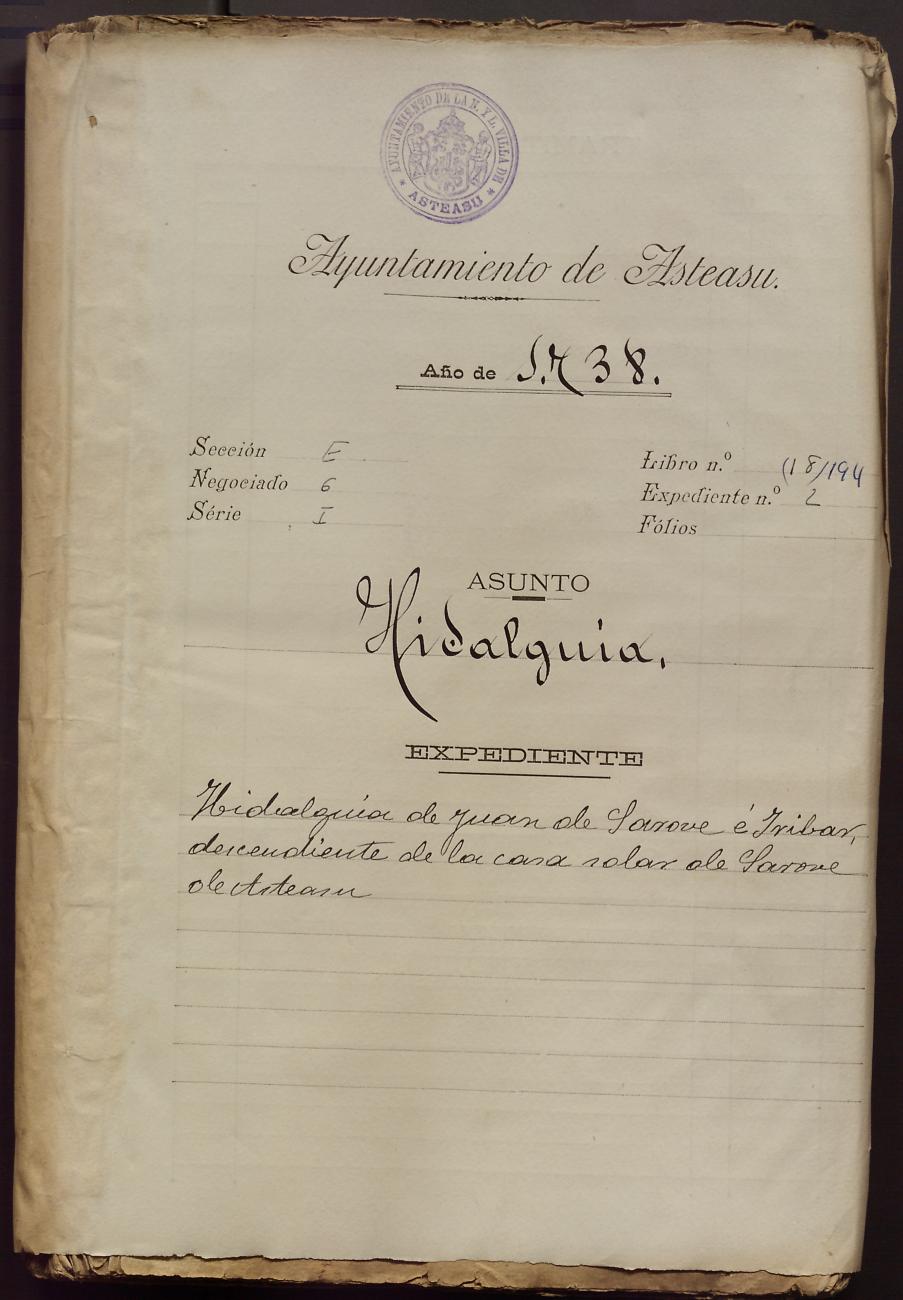 AYUNTAMIENTO DE LA N. Y L. VILLA DE
* ASTEASU *
Ayuntamiento de Asteasu.
Año de 1.738.
Sección E
Negociado 6
Série I
Libro n.º (18/194
Expediente n.º 2
Fólios
ASUNTO
Hidalguia.
EXPEDIENTE
Hidalguia de Juan de Sarove é Iribar,
descendiente de la casa solar de Sarove
de Asteasu